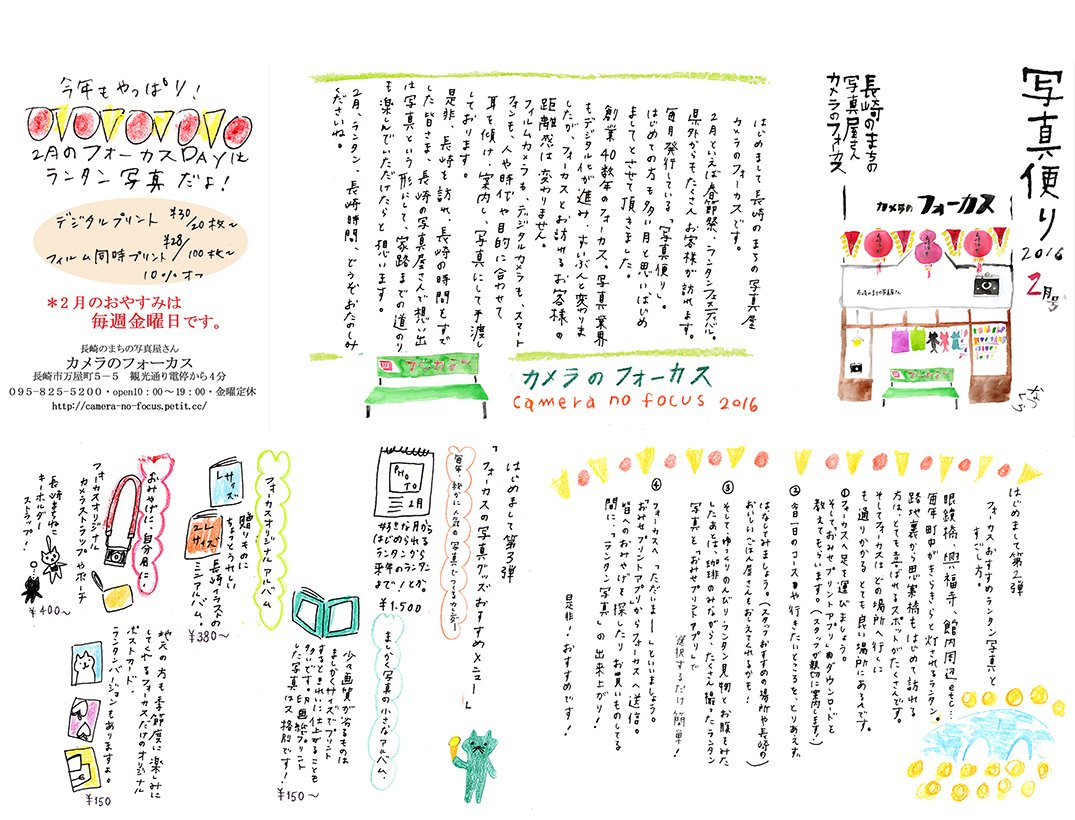 写真便り
2016
2月号
長崎のまちの
写真屋さん
カメラのフォーカス
カメラの フォーカス
長崎のまちの写真屋さん
はじめまして 長崎のまちの写真屋
カメラのフォーカスです。
2月といえば春節祭、ランタンフェスティバル。
県外からもたくさんお客様が訪れます。
毎月発行している「写真便り」。
はじめての方も多い月と思いはじめ
ましてとさせて頂きました。
創業40数年のフォーカス。写真業界
もデジタル化が進み、ずいぶんと変わりま
したが、フォーカスとお訪れるお客様の
距離感は変わりません。
フィルムカメラも、デジタルカメラも、スマート
フォンも、人や時代や目的に合わせて
耳を傾け、案内し、「写真」にして手渡し
しております。
是非、長崎を訪れ、長崎の時間をすご
した皆さま、長崎の写真屋さんで想い出
は写真という形にして、家路までの道のり
も楽しんでいただけたらと想います。
2月、ランタン、長崎時間、どうぞおたのしみ
くださいね。
カメラのフォーカス
camera no focus 2016
今年もやっぱり!
2月のフォーカスDAYは
ランタン写真だよ!
デジタルプリント ¥30/20枚〜
フィルム同時プリント ¥28/100枚〜
10%オフ
*2月のおやすみは
毎週金曜日です。
長崎のまちの写真屋さん
カメラのフォーカス
長崎市万屋町5-5 観光通り電停から4分
095-825-5200・open10:00〜19:00・金曜定休
http://camera-no-focus.petit.cc/
はじめまして第2弾
フォーカスおすすめランタン写真と
すごし方。
眼鏡橋、興福寺、館内周辺etc…
毎年町中がきらきらと灯されるランタン。
路地裏から思案橋もはじめて訪れる
方は、とても喜ばれるスポットがたくさんです。
そしてフォーカスはどの場所へ行くに
も通りかかるとても良い場所にあるんです。
①フォーカスへ足を運びましょう。
そして、おみせプリントアプリのダウンロードを
教えてもらいます。(スタッフが親切に案内します!)
②今日一日のコースや行きたいところを、とりあえず、
はなしてみましょう。(スタッフおすすめの場所や長崎の
おいしいごはん屋さんもおしえてくれるかも!)
③そしてゆっくりのんびりランタン見物とお腹をみた
したあとは、珈琲のみながら、たくさん撮ったランタン
写真を「おみせプリントアプリ」で
選択するだけ簡単!
④フォーカスへ「ただいまー」といいましょう。
「おみせプリントアプリ」からフォーカスへ送信。
皆へのおみやげを探したりお買いものしてる
間に、「ランタン写真」の出来上がり!
是非!おすすめです!
はじめまして第3弾
「フォーカスの写真グッズおすすめメニュー」
毎年、密かに人気の写真でつくるカレンダー
PHOTO
2月
好きな月から
はじめられるから
ランタンからランタン
来年のランタン
まで!とか。
¥1.500
ましかく写真の小さなアルバム。
少々画質が劣るものは
ましかくサイズでプリント
するときれいに仕上がることも
多いです。印画紙プリント
した写真は格別です!
¥150〜
フォーカスオリジナルアルバム
Lサイズ
2Lサイズ
贈りものに
ちょうどうれしい
長崎イラストの
ミニアルバム。
¥380〜
おみやげに、自分用に!
フォーカスオリジナル
カメラストラップやポーチ
長崎まちねこ
キーホルダー
ストラップ!
¥400〜
地元の方も季節度に楽しみに
してくれるフォーカスだけのオリジナル
ポストカード。
ランタンバージョンもありますよ。
¥150